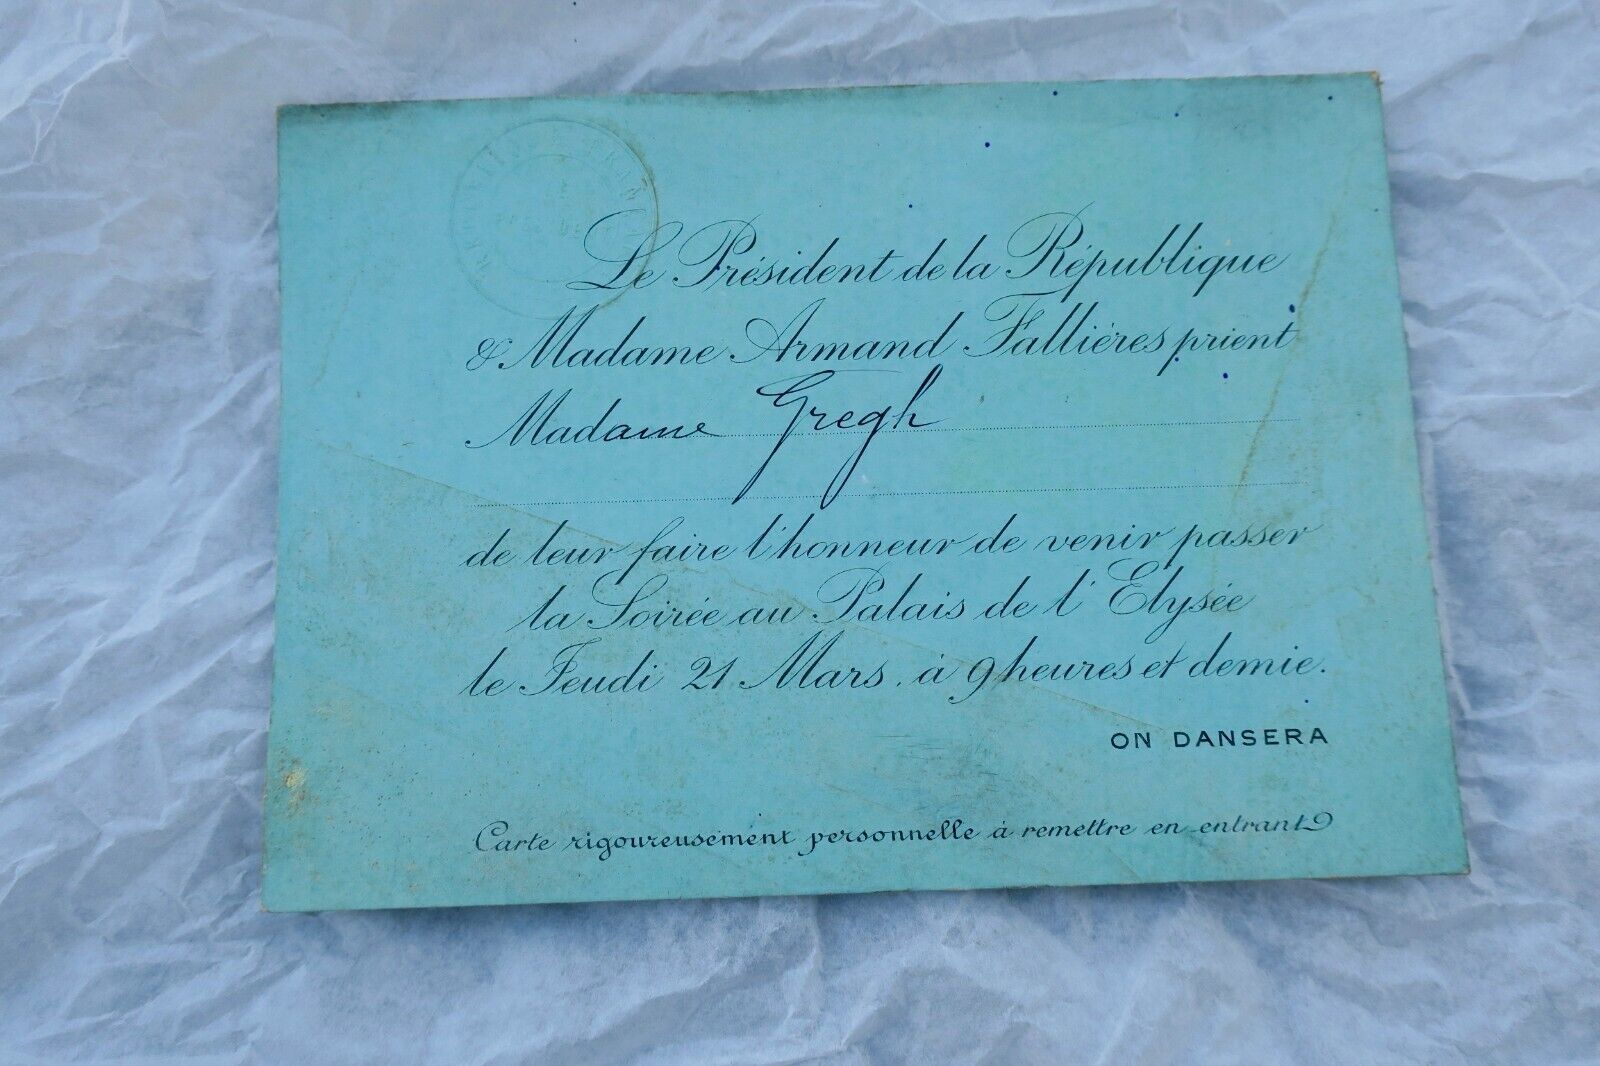 Le Président de la République
& Madame Armand Fallières prient
Madame Gregh
de leur faire l'honneur de venir passer
la Soirée au Palais de l'Elysée
le Jeudi 21 Mars à 9 heures et demie.
ON DANSERA
Carte rigoureusement personnelle à remettre en entrant